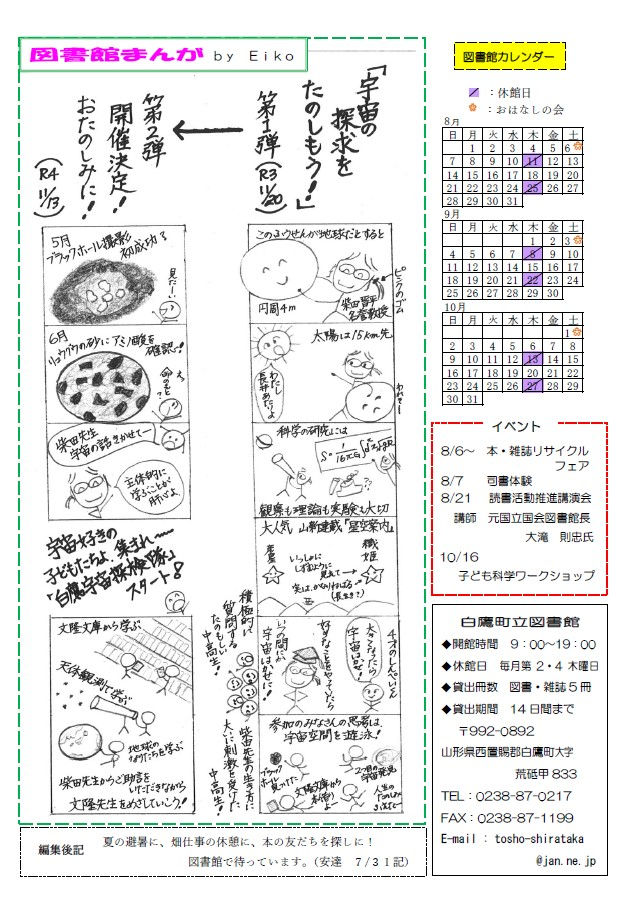 図書館まんが by Eiko
「宇宙の
探求を
たのしもう!」
第1弾(R3 11/20)
第2弾
開催決定!!
おたのしみに!!
(R4 11/13)
このふうせんが地球だとすると
円周4m
柴田晋平
名誉教授
ピンクのゴム
太陽は15km先
わたし
長井あたりよ
科学の研究には
観察も理論も実験も大切
大人気 山新連載「星空案内」
織姫
4才のしんぺいくん
大きくなったら
宇宙はかせに!
参加のみなさんの感想は、
宇宙空間を遊泳!
ブラックホール見つけた
2つ目の
宇宙発見
積極的に
質問する
たのもしい
中高生!
柴田先生の生き方に
大いに刺激を受けた
中高生!
5月
ブラックホール撮影
初成功!
見たーい
6月
リュウグウの砂にアミノ酸を
確認!
柴田先生
宇宙の話きかせてー
主体的に
学ぶことが
肝心よ
宇宙好きの
子どもたちよ、集まれ〜
「白鷹宇宙探検隊」
スタート!
文隆文庫から学ぶ
天体観測で学ぶ
地球の
なりたちを学ぶ
柴田先生からご助言を
いただきながら
文隆先生をめざしていこう!
図書館カレンダー
:休館日
:おはなしの会
8月
日 月 火 水 木 金 土
1 2 3 4 5 6
7 8 9 10 11 12 13
14 15 16 17 18 19 20
21 22 23 24 25 26 27
28 29 30 31
9月
日 月 火 水 木 金 土
1 2 3
4 5 6 7 8 9 10
11 12 13 14 15 16 17
18 19 20 21 22 23 24
25 26 27 28 29 30
10月
日 月 火 水 木 金 土
1
2 3 4 5 6 7 8
9 10 11 12 13 14 15
16 17 18 19 20 21 22
23 24 25 26 27 28 29
30 31
イベント
8/6〜 本・雑誌リサイクル
フェア
8/7 司書体験
8/21 読書活動推進講演会
講師 元国立国会図書館長
大滝 則忠氏
10/16
子ども科学ワークショップ
白鷹町立図書館
◆開館時間 9:00〜19:00
◆休館日 毎月第2・4木曜日
◆貸出冊数 図書・雑誌5冊
◆貸出期間 14日間まで
〒992-0892
山形県西置賜郡白鷹町大字
荒砥甲833
TEL:0238-87-0217
FAX:0238-87-1199
E-mail:tosho-shirataka
@jan.ne.jp
編集後記 夏の避暑に、畑仕事の休憩に、本の友だちを探しに!
図書館で待っています。(安達 7/31記)